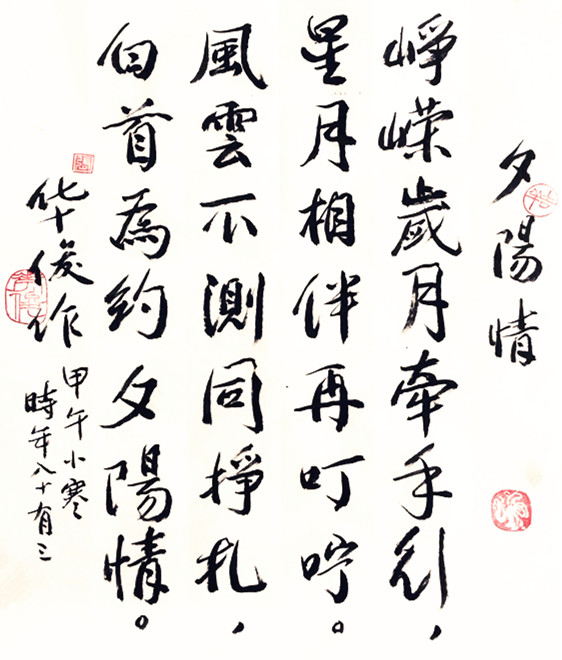 夕陽情
崢嵘歲月牽手行，
星月相伴再叮咛。
風雲不測同掙札，
白首為约夕陽情。
华俊作
甲午小寒
時年八十有三